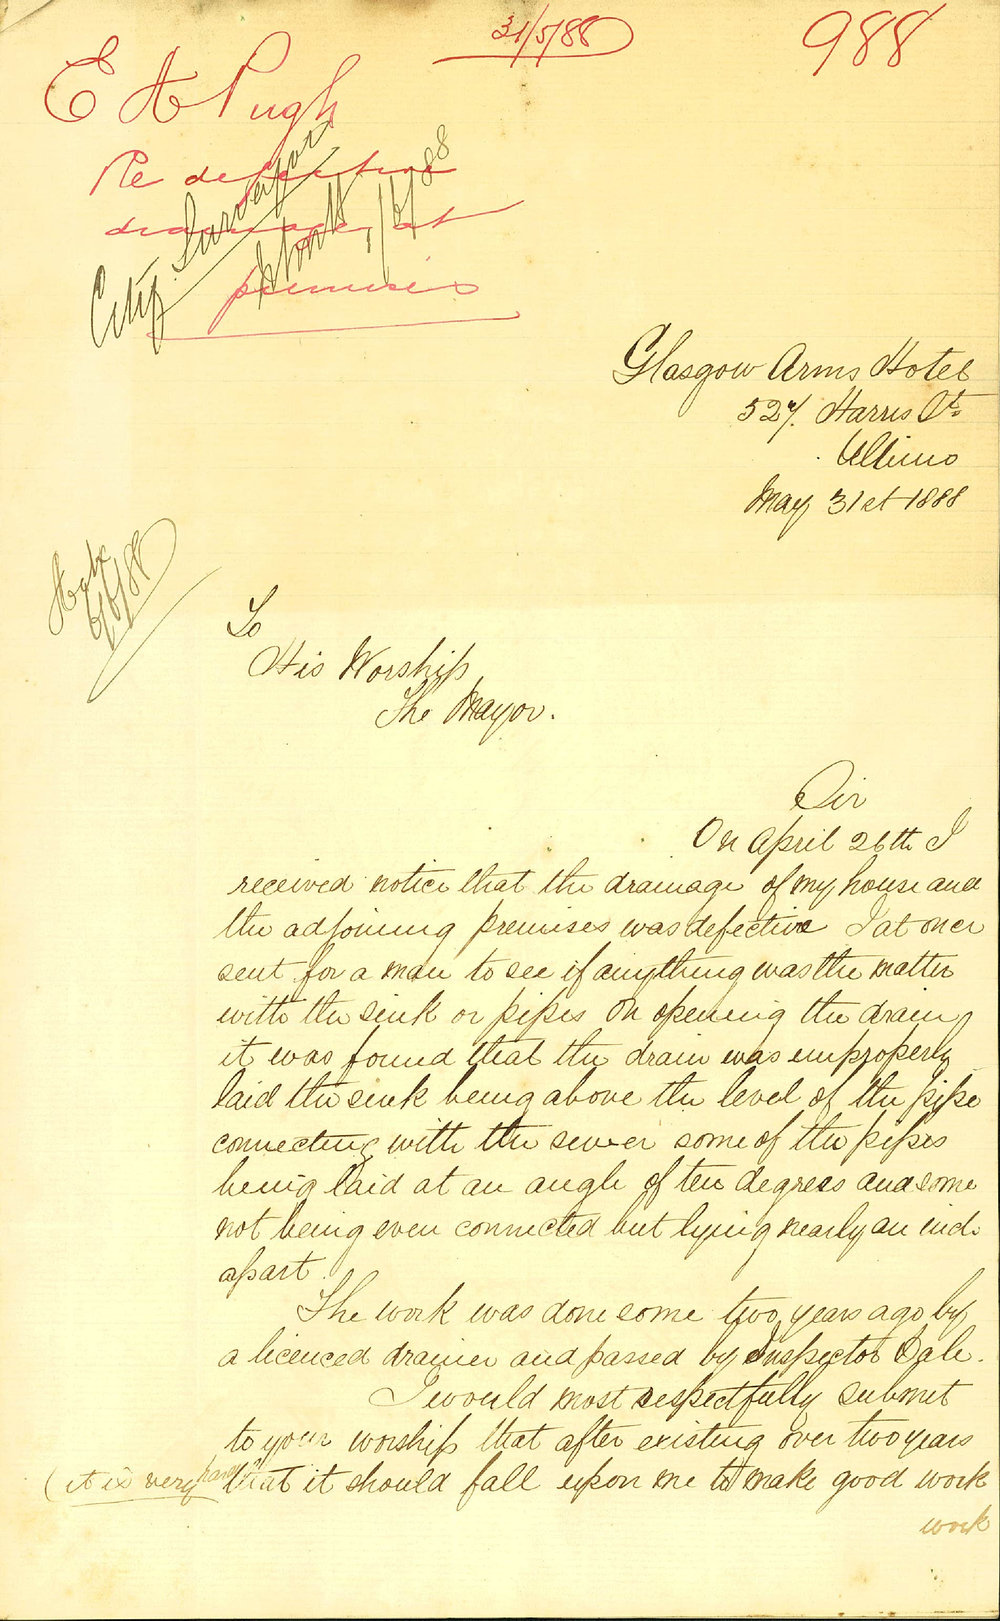 31/5/88
988
E H Pugh
Re defective
drainage at
premises
City Surveyor
1/6/88
Glasgow Arms Hotel
527. Harris St.
Ultimo
May 31st 1888
6/6/88
To
His Worship
The Mayor.
Sir
On April 26th I
received notice that the drainage of my house and
the adjoining premises was defective I at once
sent for a man to see if anything was the matter
with the sink or pipes on opening the drain
it was found that the drain was improperly
laid the sink being above the level of the pipe
connecting with the sewer some of the pipes
being laid at an angle of ten degrees and some
not being even connected but lying nearly an inch
apart.
The work was done some two years ago by
a licenced drainer and passed by Inspector Dale.
I would most respectfully submit
to your worship that after existing over two years
(it is very hard that it should fall upon me to make good work
work